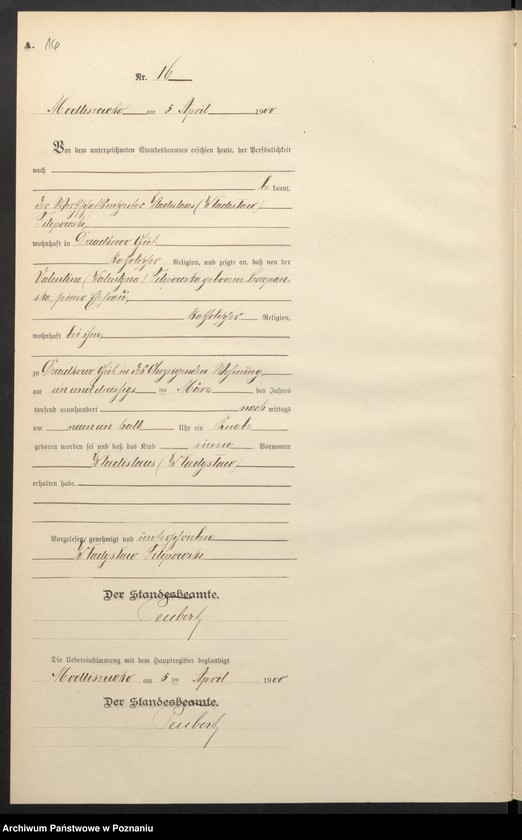 A. 16
Nr. 16
Modliszewko am 5 April 1900
Vor dem unterzeichneten Standesbeamten erschien heute, der Persönlichkeit
nach
be kannt,
der Wladislaus (Władisław)
Filipowski
wohnhaft in
katholischer Religion, und zeigte an, daß von der
Valentina (Walentyna) Filipowska geborene
seiner Ehefrau,
katholischer Religion,
wohnhaft bei ihm,
zu in des Anzeigenden Wohnung,
am einunddreißigs ten März des Jahres
tausend neunhundert nach mittags
um neun ein halb Uhr ein Knabe
geboren worden sei und daß das Kind einen Vornamen
Wladislaus (Władysław)
erhalten habe.
Vorgelesen, genehmigt und unterschrieben
Władysław Filipowski
Der Standesbeamte.
Die Uebereinstimmung mit dem Hauptregister beglaubigt
Modliszewko am 5 ten April 1900
Der Standesbeamte.
Archiwum Państwowe w Poznaniu